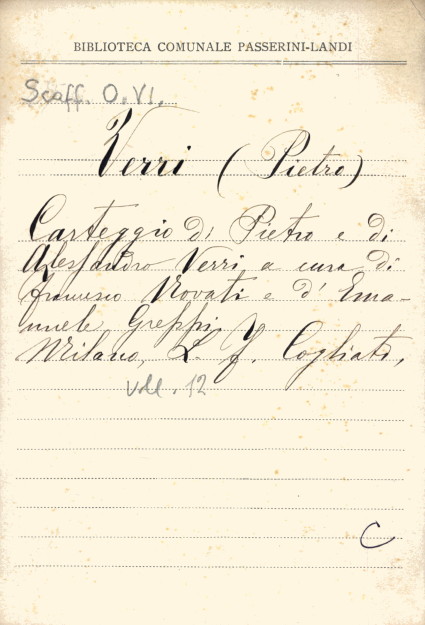 BIBLIOTECA COMUNALE PASSERINI-LANDI
Scaff. O. VI.
Verri (Pietro)
Carteggio di Pietro e di
Alessandro Verri a cura di
Francesco Novati e d' Ema-
nuele Greppi
Milano, L. F. Cogliati,
voll. 12
C